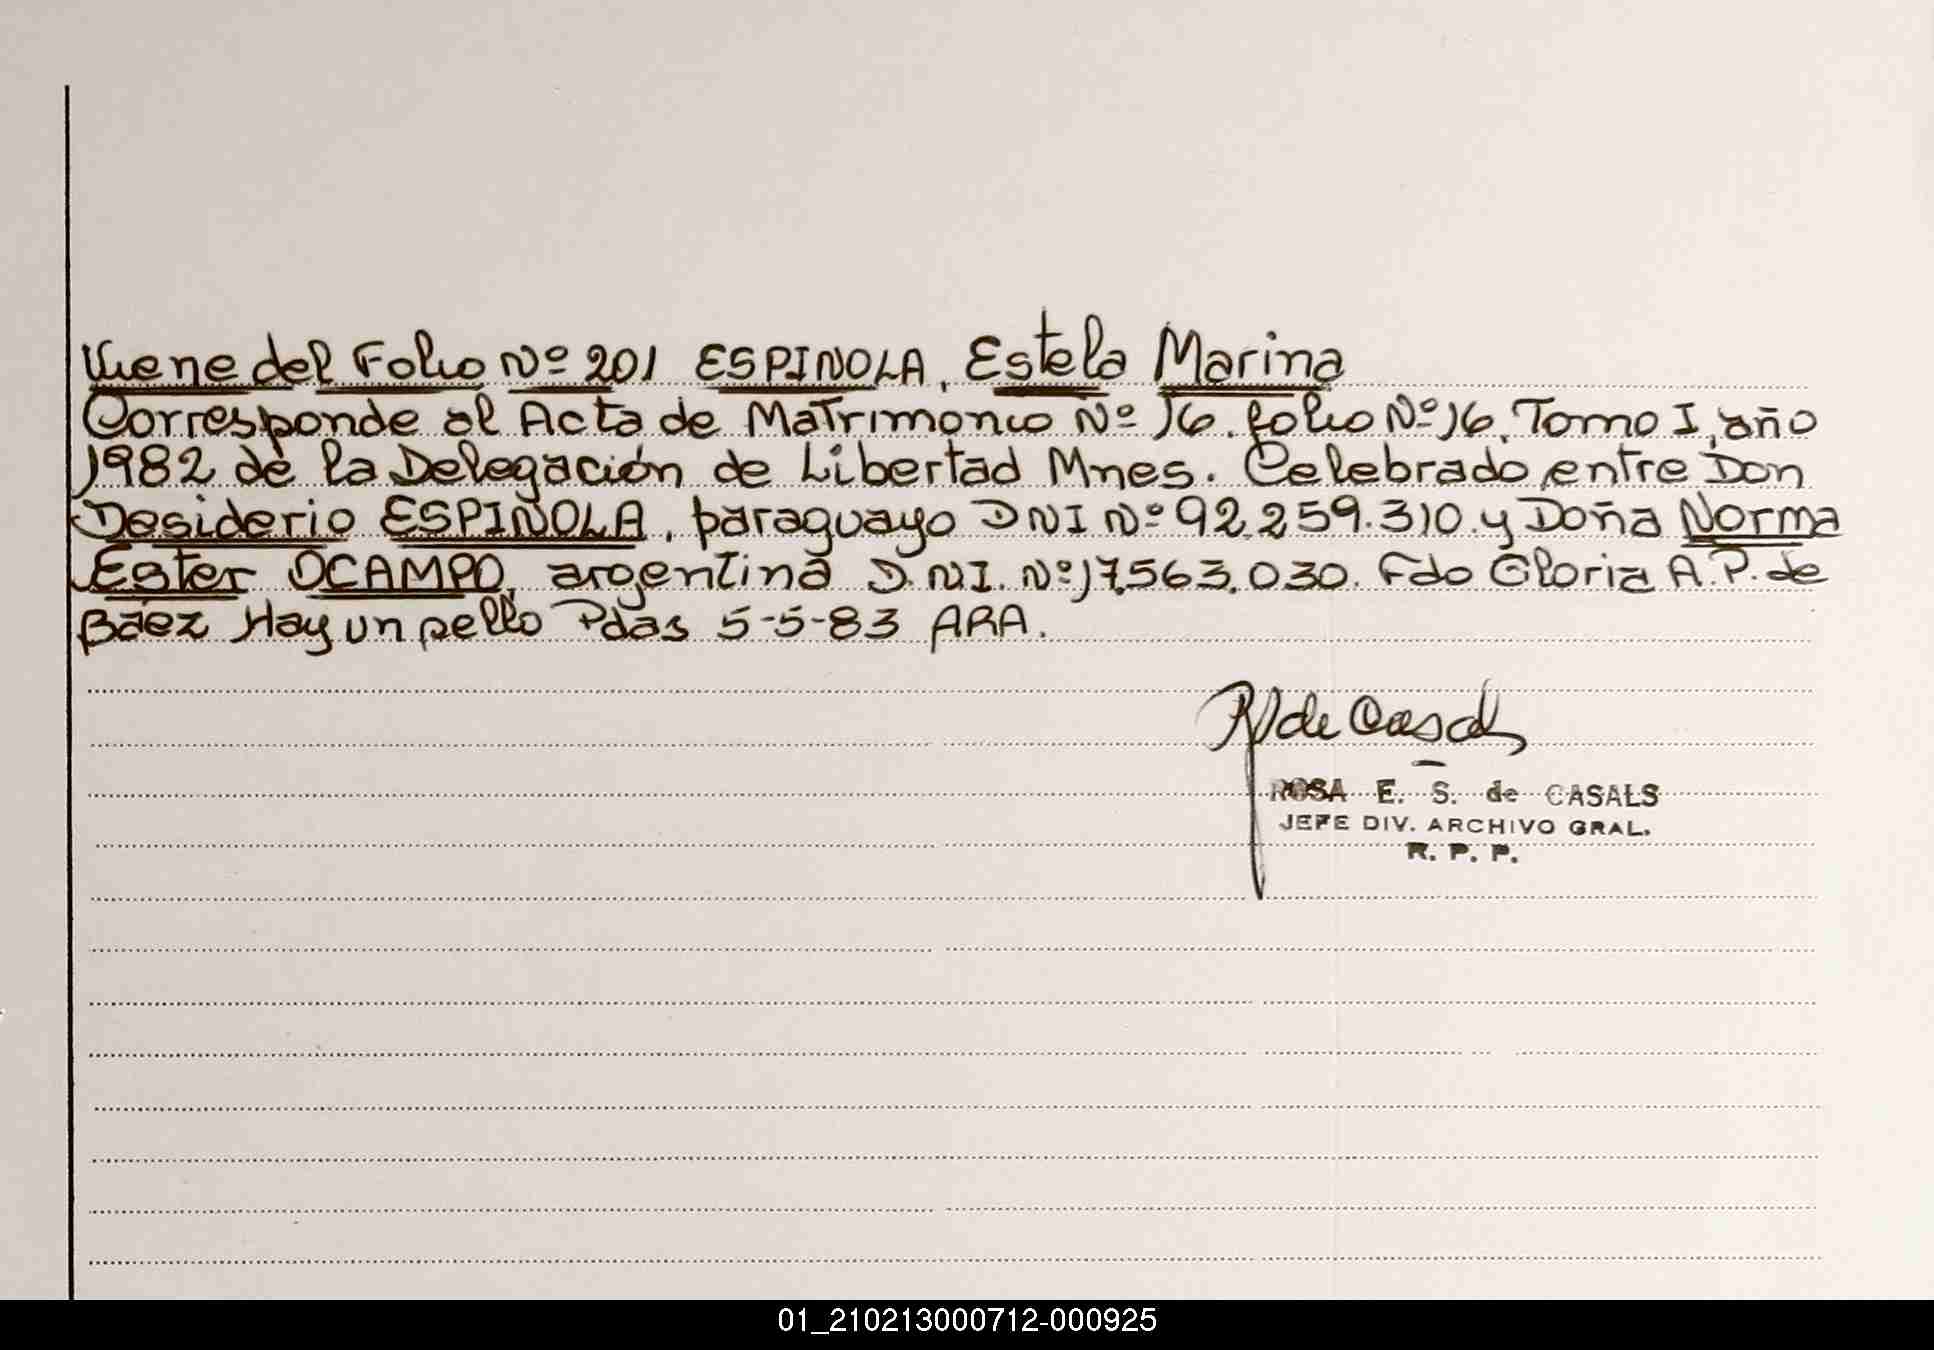 Viene del Folio Nº 201 ESPINOLA, Estela Marina
Corresponde al Acta de Matrimonio Nº 16. folio Nº 16, Tomo I, año
1982 de la Delegación de Libertad Mnes. Celebrado entre Don
Desiderio ESPINOLA, paraguayo DNI Nº 92.259.310 y Doña Norma
Ester OCAMPO, argentina D.N.I. Nº 17.563.030. Fdo Gloria A.P. de
Báez Hay un sello Pdas 5-5-83 ARA.
R de Casals
ROSA E. S. de CASALS
JEFE DIV. ARCHIVO GRAL.
R. P. P.
01_210213000712-000925